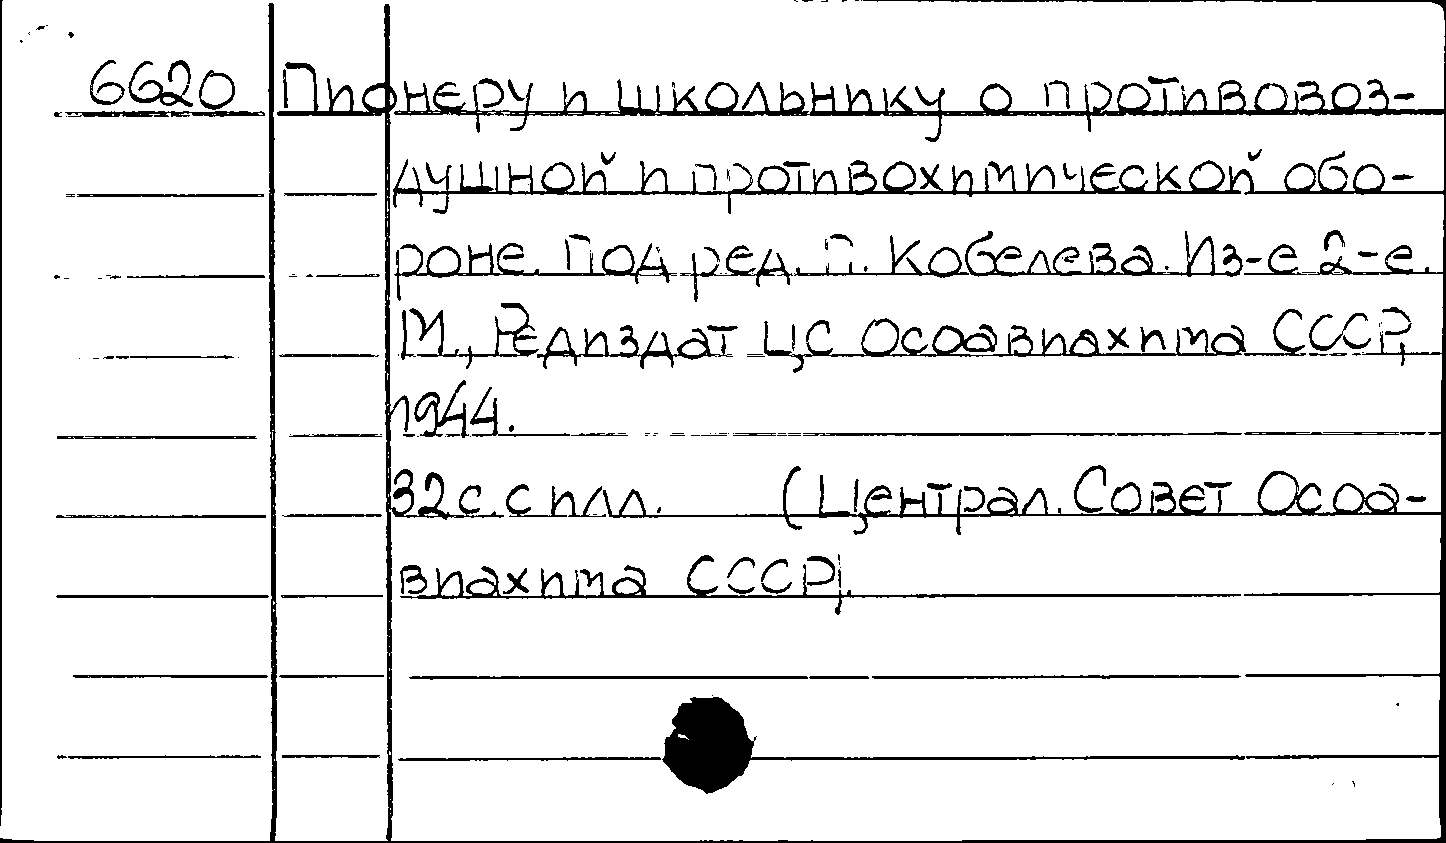 6620 Пионеру и школьнику о противовоз-
душной и противохимической обо-
роне. Под ред. П. Кобелева. Из-е 2-е.
М., Редиздат ЦС Осоавиахима СССР,
1944.
32 с. с илл. (Централ. Совет Осоа-
виахима СССР).